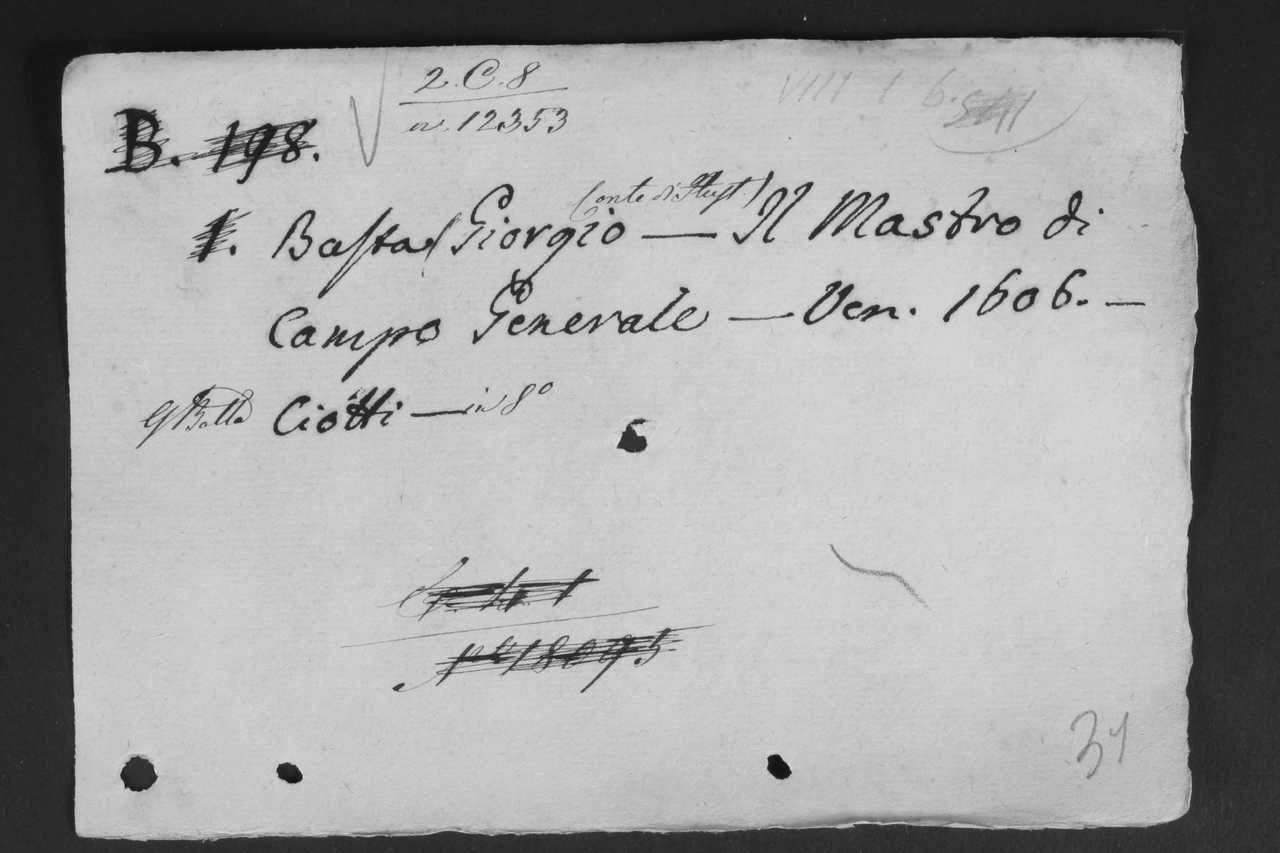 2. C. 8
n. 12353
VIII 1 6.
B. 198.
(Conte di Hust.)
1. Basta Giorgio — Il Mastro di
Campo Generale — Ven. 1606. —
G Batta Ciotti — in 8°
18095
31